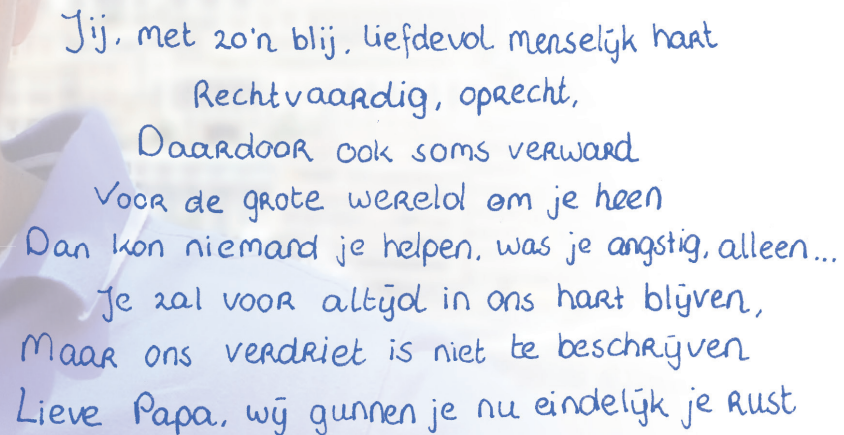 Jij, met zo'n blij, liefdevol menselijk hart
Rechtvaardig, oprecht,
Daardoor ook soms verward
Voor de grote wereld om je heen
Dan kon niemand je helpen, was je angstig, alleen...
Je zal voor altijd in ons hart blijven,
Maar ons verdriet is niet te beschrijven
Lieve Papa, wij gunnen je nu eindelijk je rust